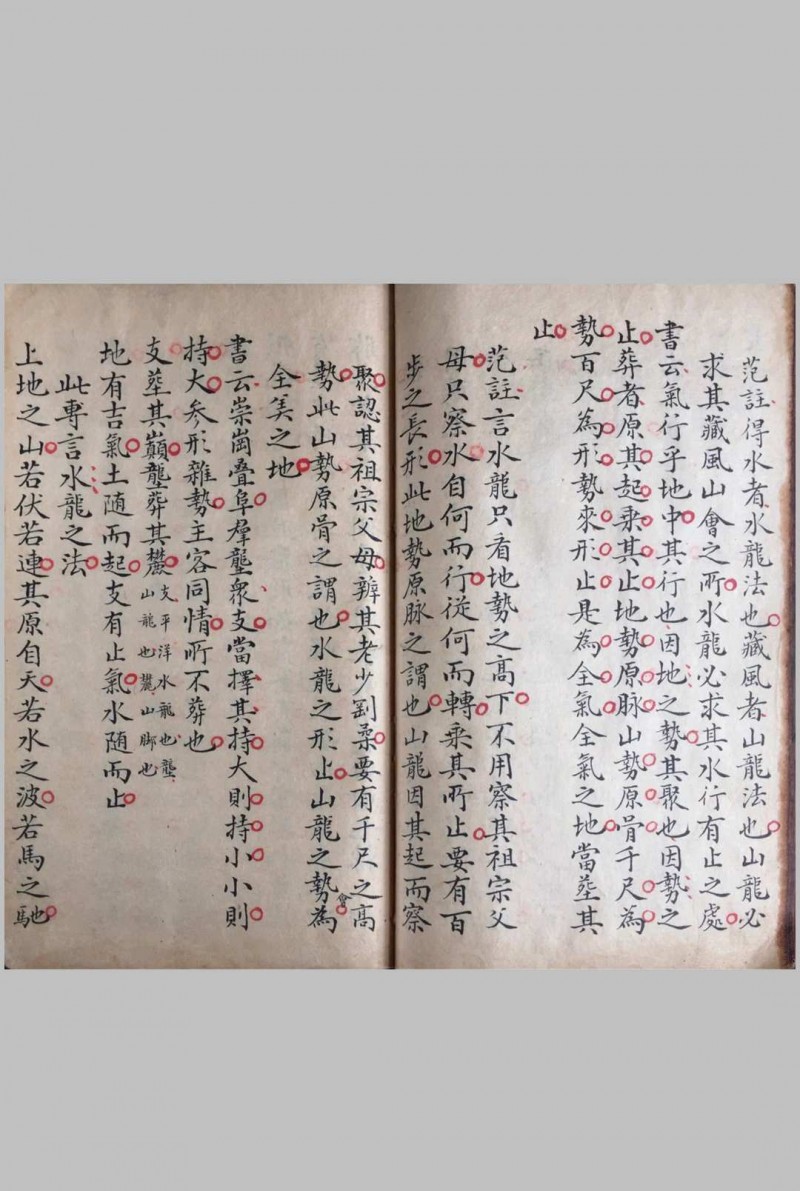 范註得水者水龍法也藏風者山龍法也山龍必
求其藏風山會之所水龍必求其水行有止之處
書云氣行乎地中其行也因地之勢其聚也因勢之
止葬者原其起乘其止地勢原脉山勢原骨千尺為
勢百尺為形勢來形止是為全氣全氣之地當塟其
止
范註言水龍只看地勢之高下不用察其祖宗父
母只察水自何而行從何而轉乘其所止要有百
步之長形此地勢原脉之謂也山龍因其起而察
聚認其祖宗父母辨其老少剛柔要有千尺之高
勢此山勢原骨之謂也水龍之形止山龍之勢為會
全美之地
書云崇崗叠阜羣壟衆支當擇其持大則持小小則
持大參形雜勢主客同情所不葬也
支塟其巔壟葬其麓支平洋水龍也壟山龍也麓山脚也
地有吉氣土随而起支有止氣水随而止
此專言水龍之法
上地之山若伏若連其原自天若水之波若馬之馳